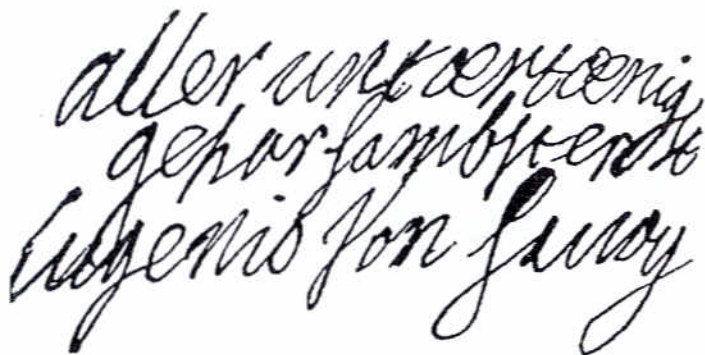 aller untertænig
gehorsambster
Eugenio Von Savoy